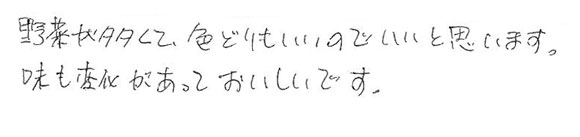 野菜が多くて、色どりもいいのでいいと思います。
味も変化があっておいしいです。